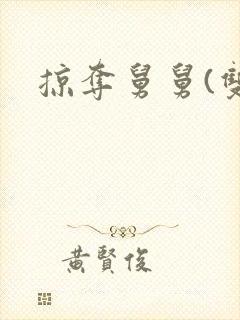 掠奪舅舅(雙
黃賢俊